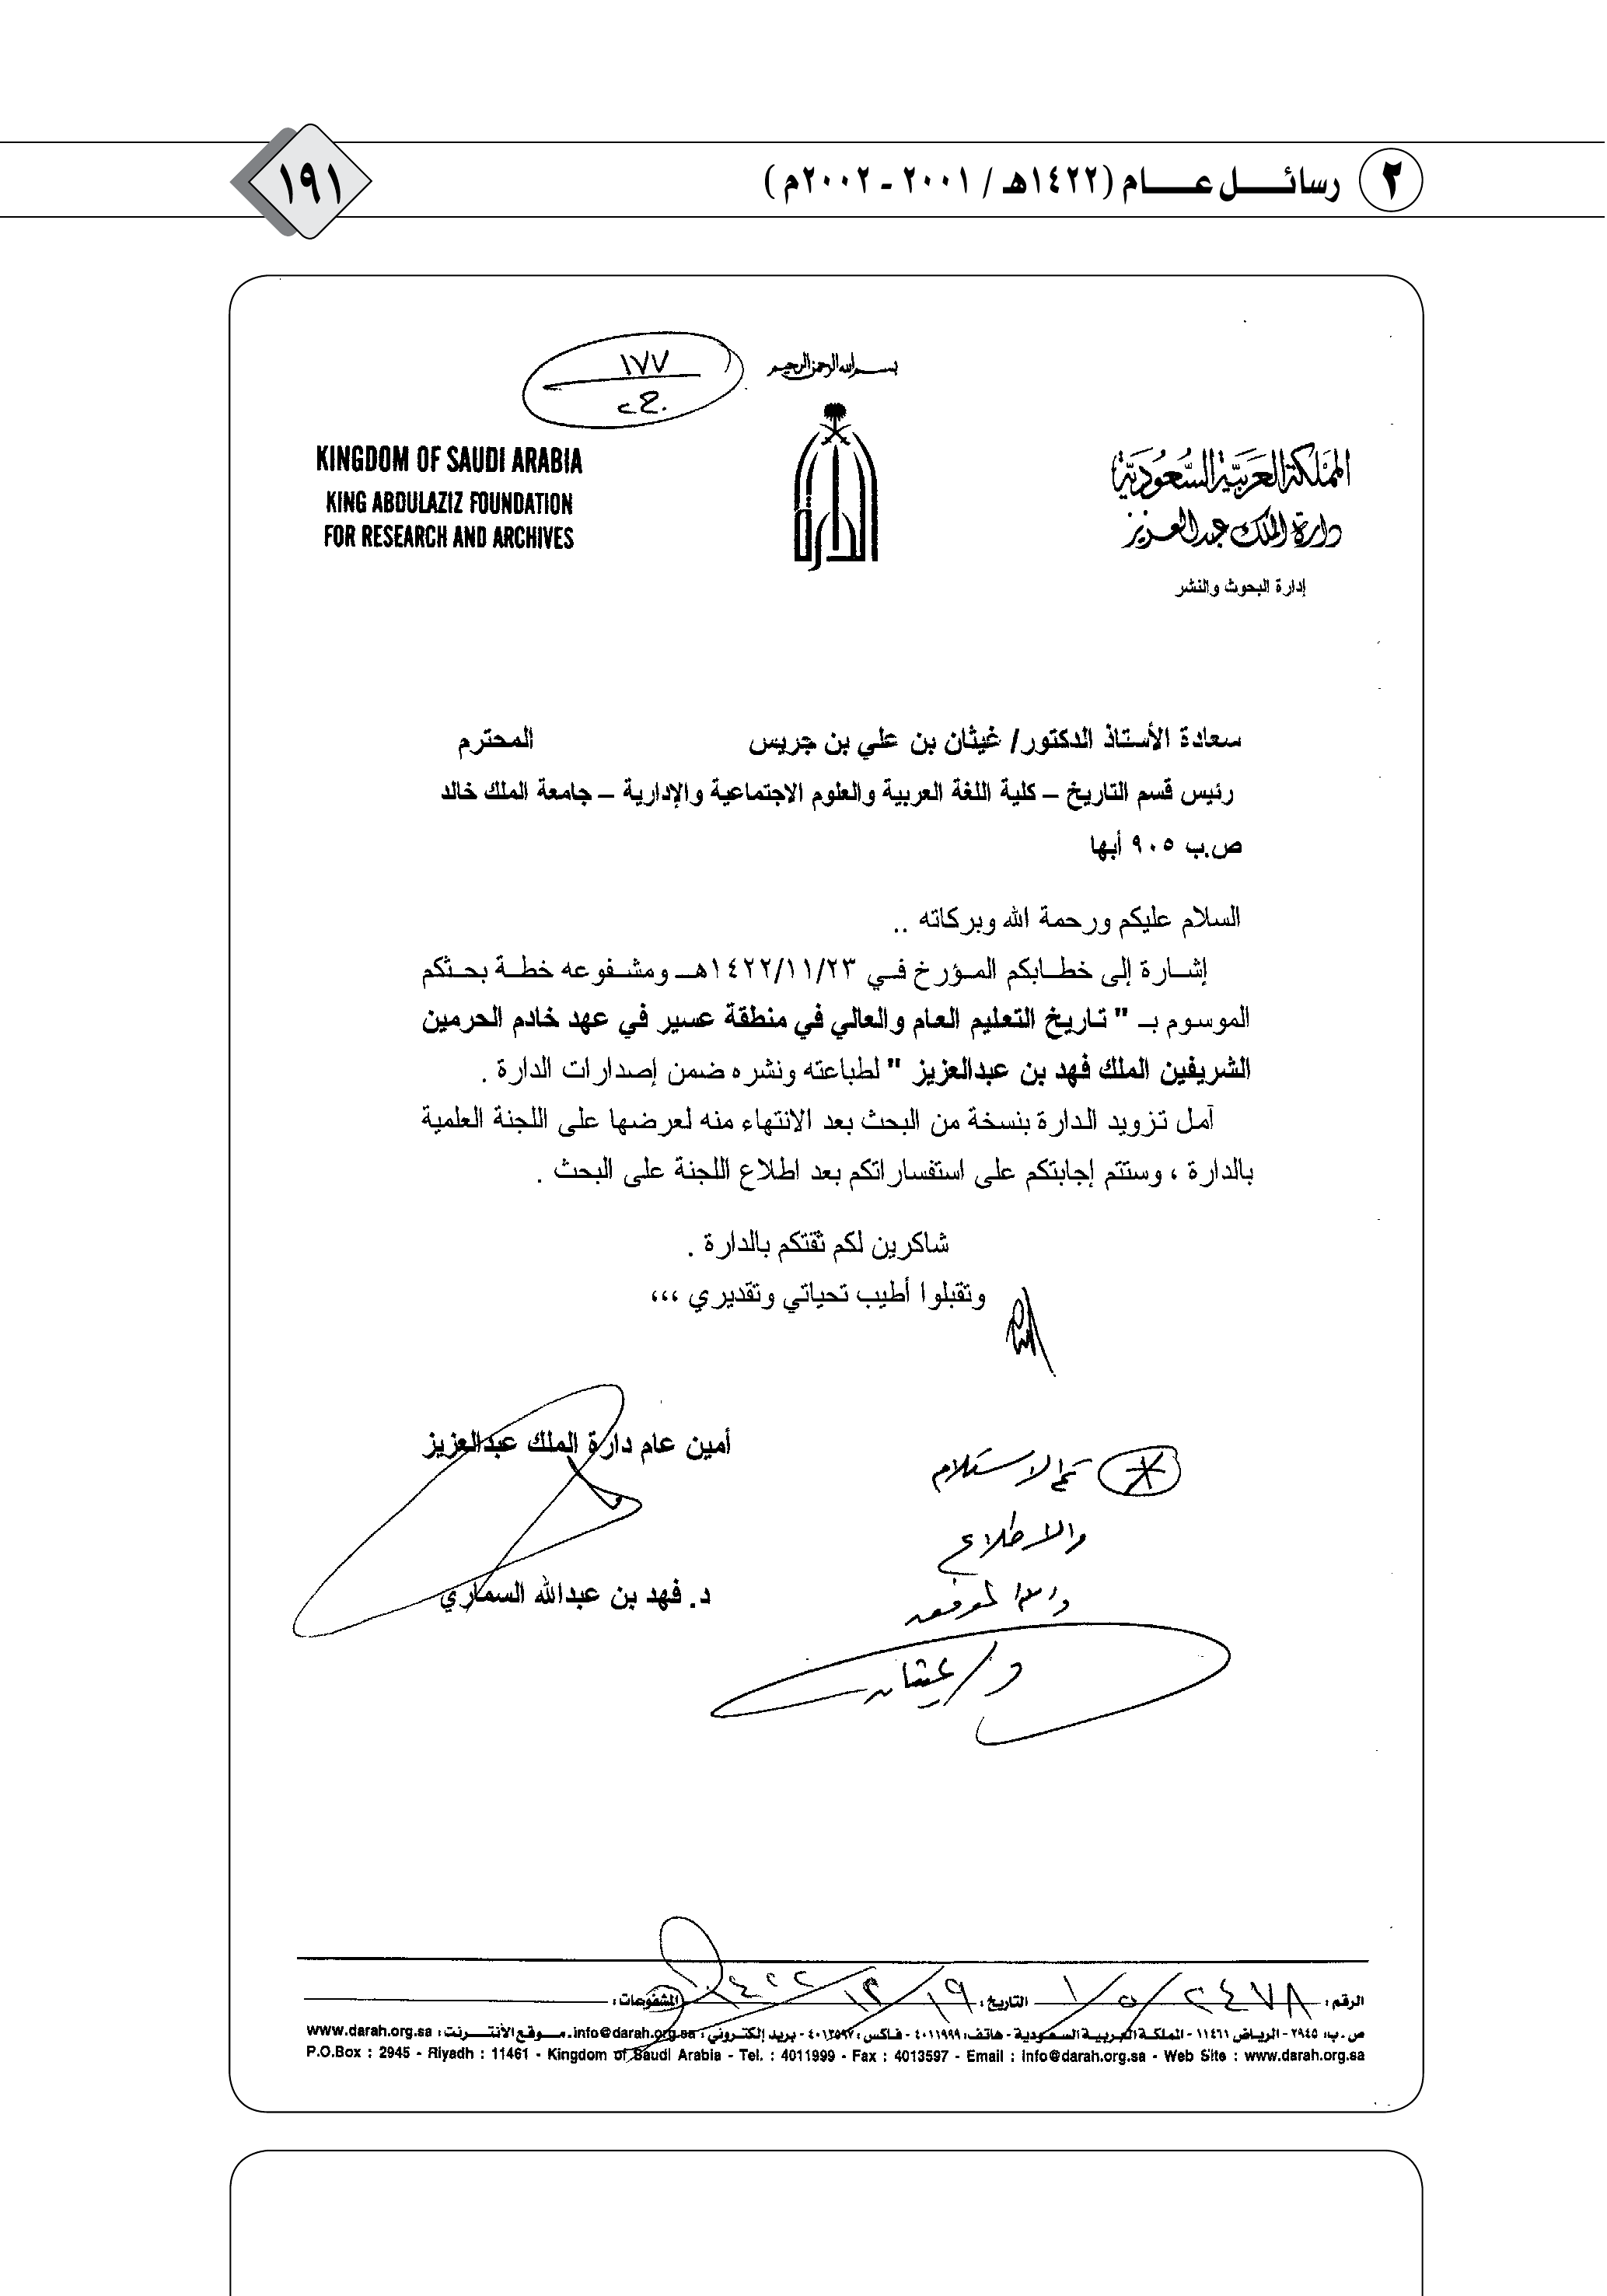 ٢ رسائـــل عـــام (١٤٢٢هـ / ٢٠٠١ ـ ٢٠٠٢م )
١٩١
١٧٧
بسم الله الرحمن الرحيم
KINGDOM OF SAUDI ARABIA
KING ABDULAZIZ FOUNDATION
FOR RESEARCH AND ARCHIVES
الدارة
المملكة العربية السعودية
دارة الملك عبدالعزيز
إدارة البحوث والنشر
سعادة الأستاذ الدكتور/ غيثان بن علي بن جريس المحترم
رئيس قسم التاريخ – كلية اللغة العربية والعلوم الاجتماعية والإدارية – جامعة الملك خالد
ص.ب ٩٠٥ أبها
السلام عليكم ورحمة الله وبركاته ..
إشارة إلى خطابكم المؤرخ في ١٤٢٢/١١/٢٣هـ ومشفوعه خطة بحثكم
الموسوم بـ " تاريخ التعليم العام والعالي في منطقة عسير في عهد خادم الحرمين
الشريفين الملك فهد بن عبدالعزيز " لطباعته ونشره ضمن إصدارات الدارة .
آمل تزويد الدارة بنسخة من البحث بعد الانتهاء منه لعرضها على اللجنة العلمية
بالدارة ، وستتم إجابتكم على استفساراتكم بعد اطلاع اللجنة على البحث .
شاكرين لكم ثقتكم بالدارة .
وتقبلوا أطيب تحياتي وتقديري ،،،
أمين عام دارة الملك عبدالعزيز
د. فهد بن عبدالله السماري
تم الاستلام
والاطلاع
والله الموفق
د/ غيثان
الرقم : ٢٤٧٨ / ٥ / ١ التاريخ : ١٩ / ١٢ / ١٤٢٢ المشفوعات :
ص.ب: ٢٩٤٥ - الرياض ١١٤٦١ - المملكة العربية السعودية - هاتف: ٤٠١١٩٩٩ - فاكس : ٤٠١٣٥٩٧ - بريد إلكتروني : info@darah.org.sa - موقع الأنترنت : www.darah.org.sa
P.O.Box : 2945 - Riyadh : 11461 - Kingdom of Saudi Arabia - Tel. : 4011999 - Fax : 4013597 - Email : info@darah.org.sa - Web Site : www.darah.org.sa